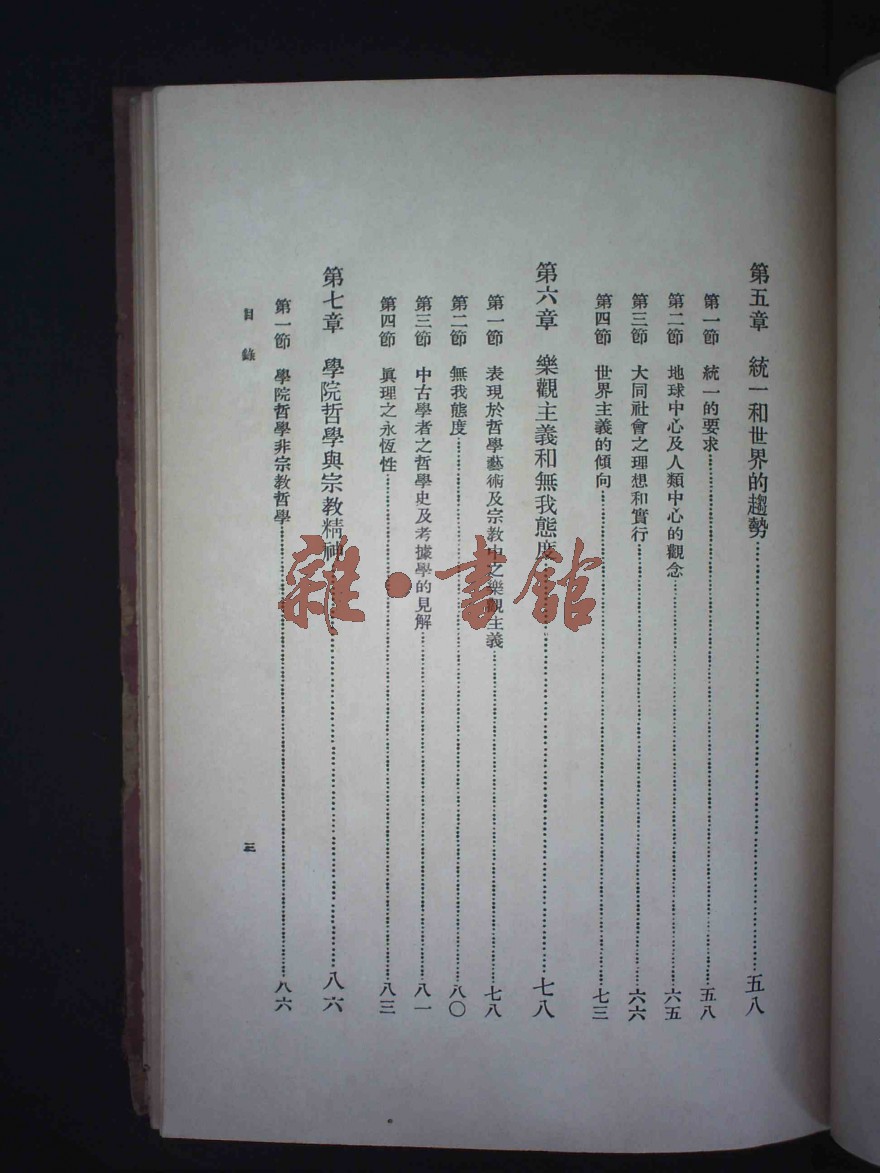 第五章　統一和世界的趨勢……五八
第一節　統一的要求……五八
第二節　地球中心及人類中心的觀念……六五
第三節　大同社會之理想和實行……六六
第四節　世界主義的傾向……七三
第六章　樂觀主義和無我態度……七八
第一節　表現於哲學藝術及宗教中之樂觀主義……七八
第二節　無我態度……八〇
第三節　中古學者之哲學史及考據學的見解……八一
第四節　眞理之永恆性……八三
第七章　學院哲學與宗教精神……八六
第一節　學院哲學非宗教哲學……八六
目錄
三
雜·書館